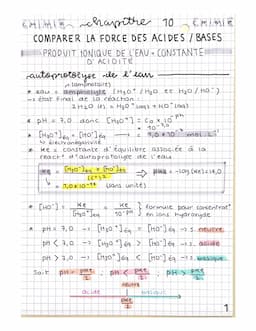 CHIMIE chapitre 10 CHIMIE
COMPARER LA FORCE DES ACIDES / BASES
PRODUIT IONIQUE DE L'EAU + CONSTANTE
D'ACIDITÉ
autoprotolyse de l'eau
(amphotère)
* eau = ampholyte (H₃O⁺/H₂O et H₂O/HO⁻)
→ état final de la réaction :
2H₂O (l) ⇌ H₃O⁺(aq) + HO⁻(aq)
* pH = 7,0 donc [H₃O⁺] = C₀ × 10^-pH
* [H₃O⁺]éq = [HO⁻]éq = 1,0 × 10⁻⁷ mol.L⁻¹
↳ électroneutralité
* Ke = constante d'équilibre associée à la
réact° d'autoprotolyse de l'eau
Ke = [H₃O⁺]éq × [HO⁻]éq / (c°)² → pKe = -log(Ke) = 14,0
= 1,0×10⁻¹⁴ (sans unité)
* [HO⁻] = Ke / [H₃O⁺]éq = Ke / 10^-pH } formule pour concentrat°
en ions hydroxyde
* pH = 7,0 → [H₃O⁺]éq = [HO⁻]éq → s. neutre
* pH < 7,0 → [H₃O⁺]éq > [HO⁻]éq → s. acide
* pH > 7,0 → [H₃O⁺]éq < [HO⁻]éq → s. basique
Soit pH = pKe/2 ; pH < pKe/2 ; pH > pKe/2
neutre
acide basique
pKe/2
1